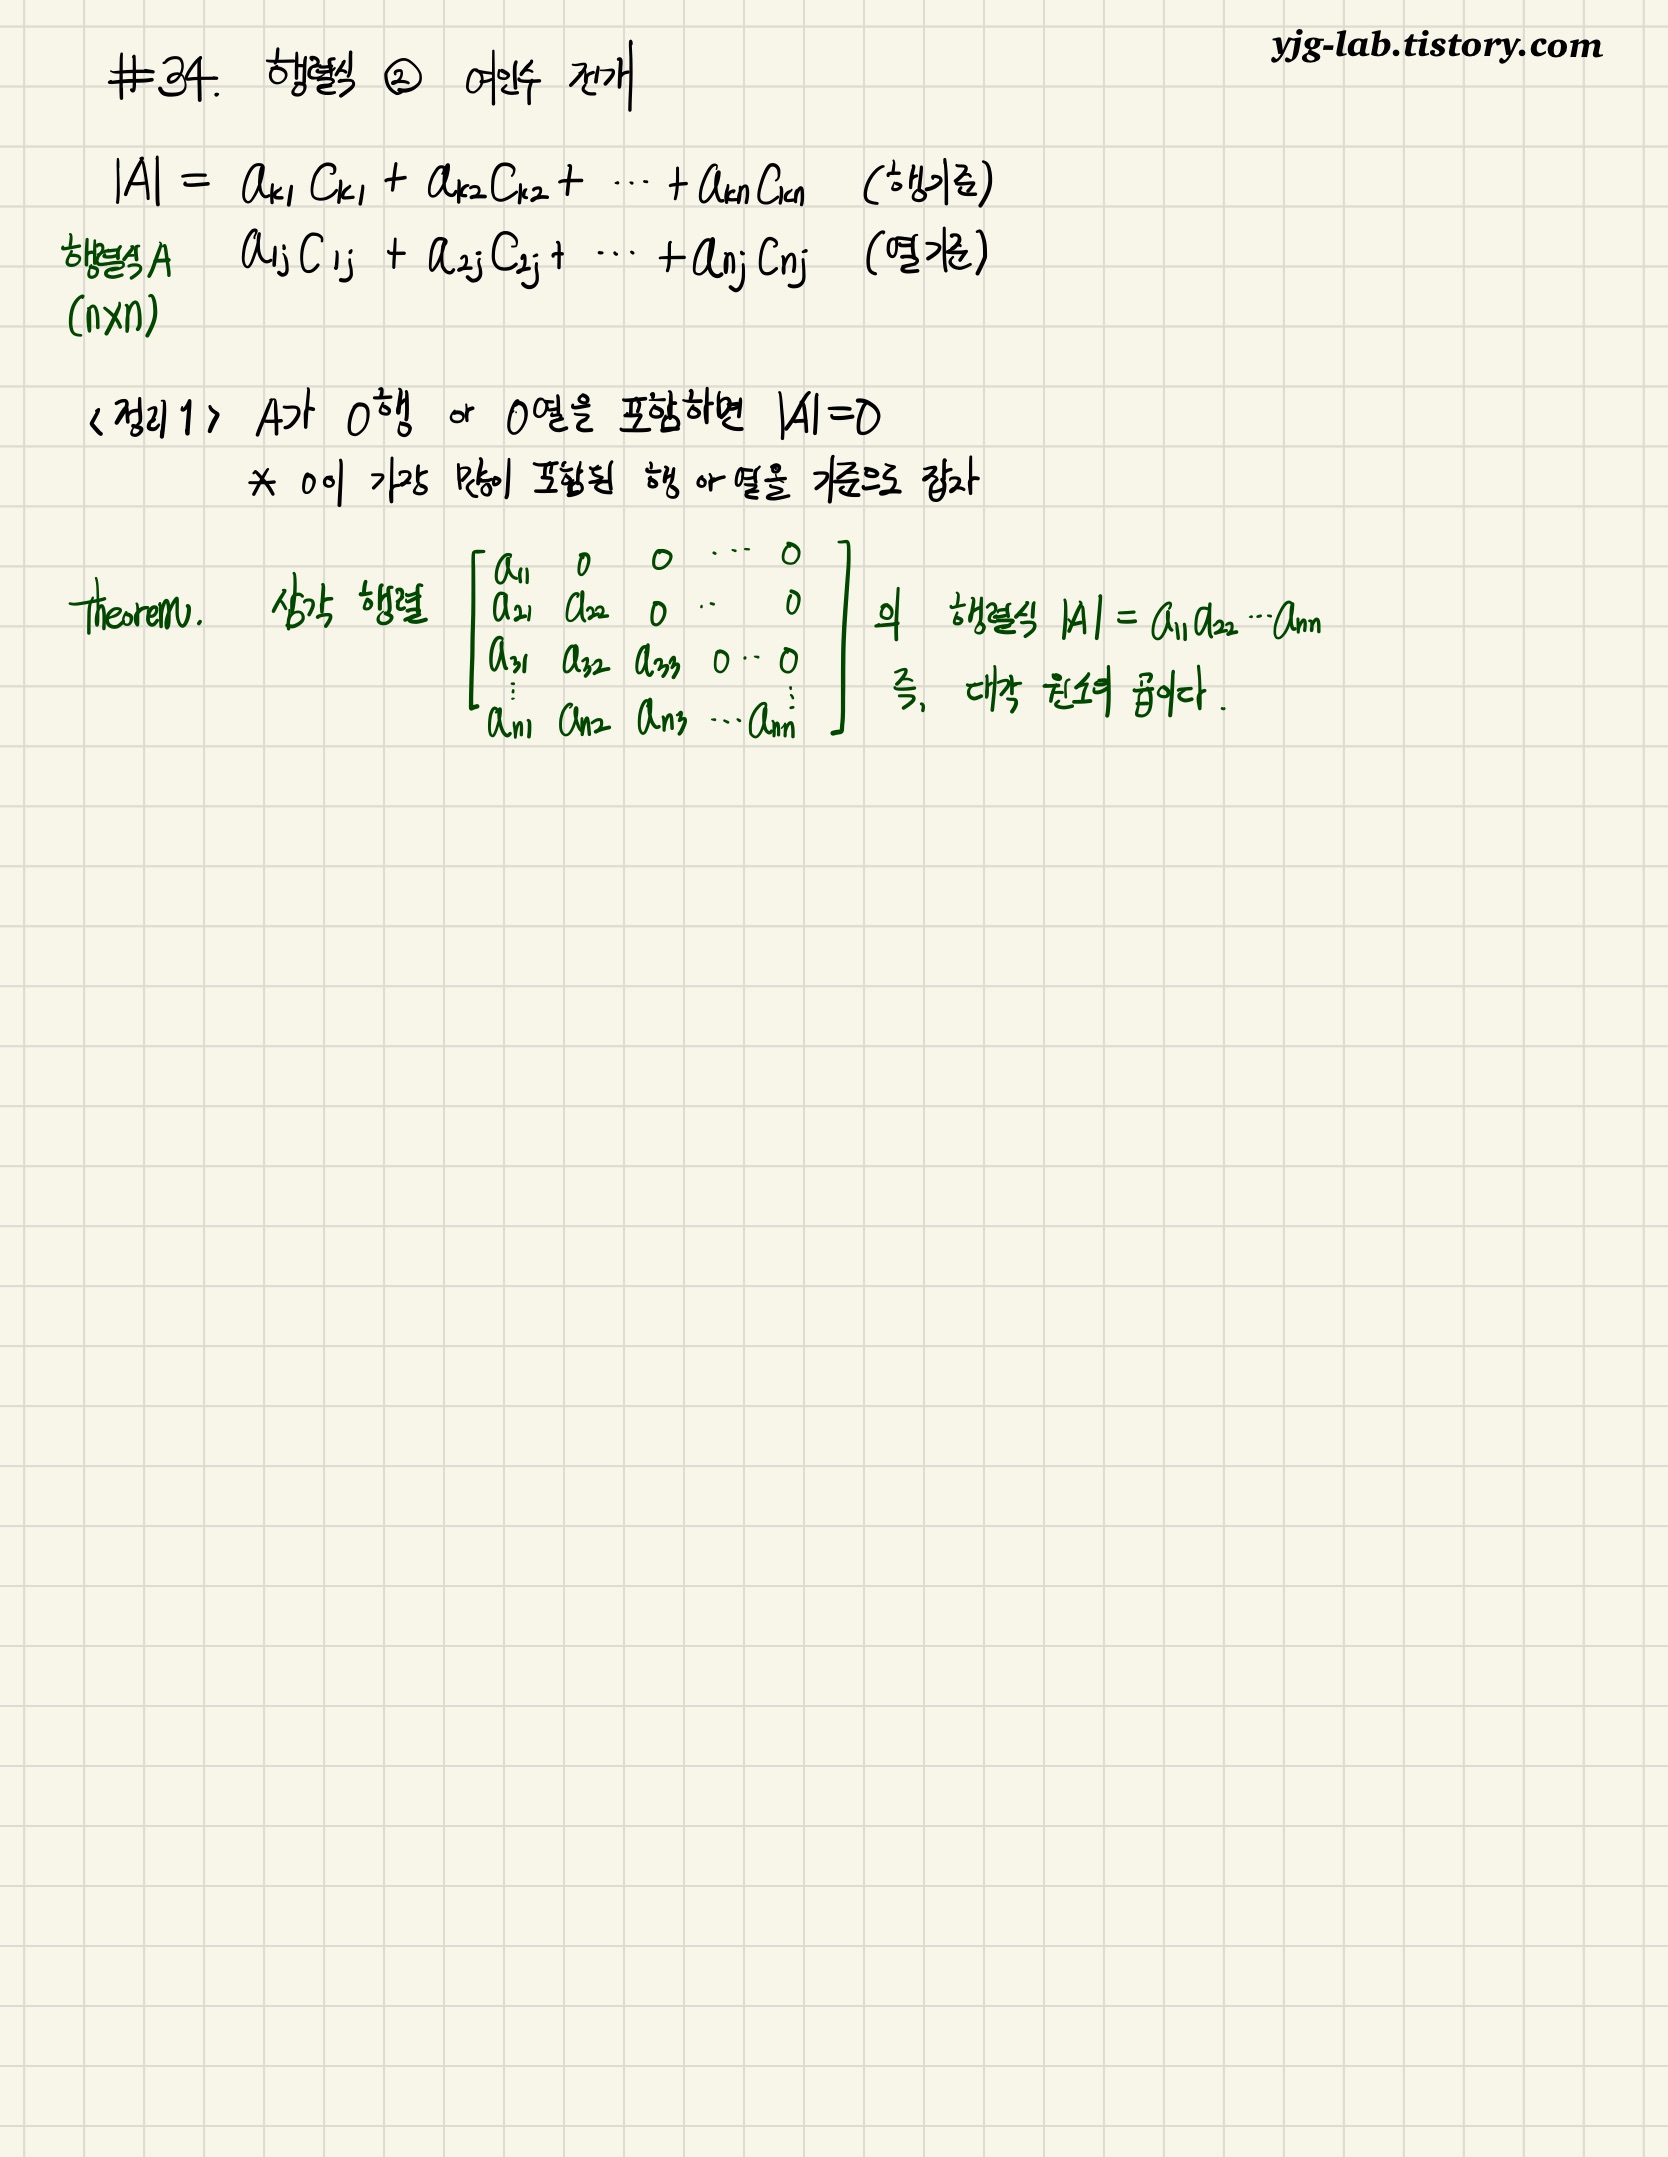 yjg-lab.tistory.com
#34. 행렬식 ② 여인수 전개
|A| = a_{k1} C_{k1} + a_{k2} C_{k2} + ... + a_{kn} C_{kn} (행기준)
행렬식 A a_{1j} C_{1j} + a_{2j} C_{2j} + ... + a_{nj} C_{nj} (열기준)
(n×n)
<정리 1> A가 0행 or 0열을 포함하면 |A|=0
* 0이 가장 많이 포함된 행 or 열을 기준으로 잡자
Theorem. 삼각 행렬
[ a_{11} 0 0 ... 0
a_{21} a_{22} 0 .. 0
a_{31} a_{32} a_{33} 0 .. 0
⋮ ⋮
a_{n1} a_{n2} a_{n3} ... a_{nn} ]
의 행렬식 |A| = a_{11} a_{22} ... a_{nn}
즉, 대각 원소의 곱이다.